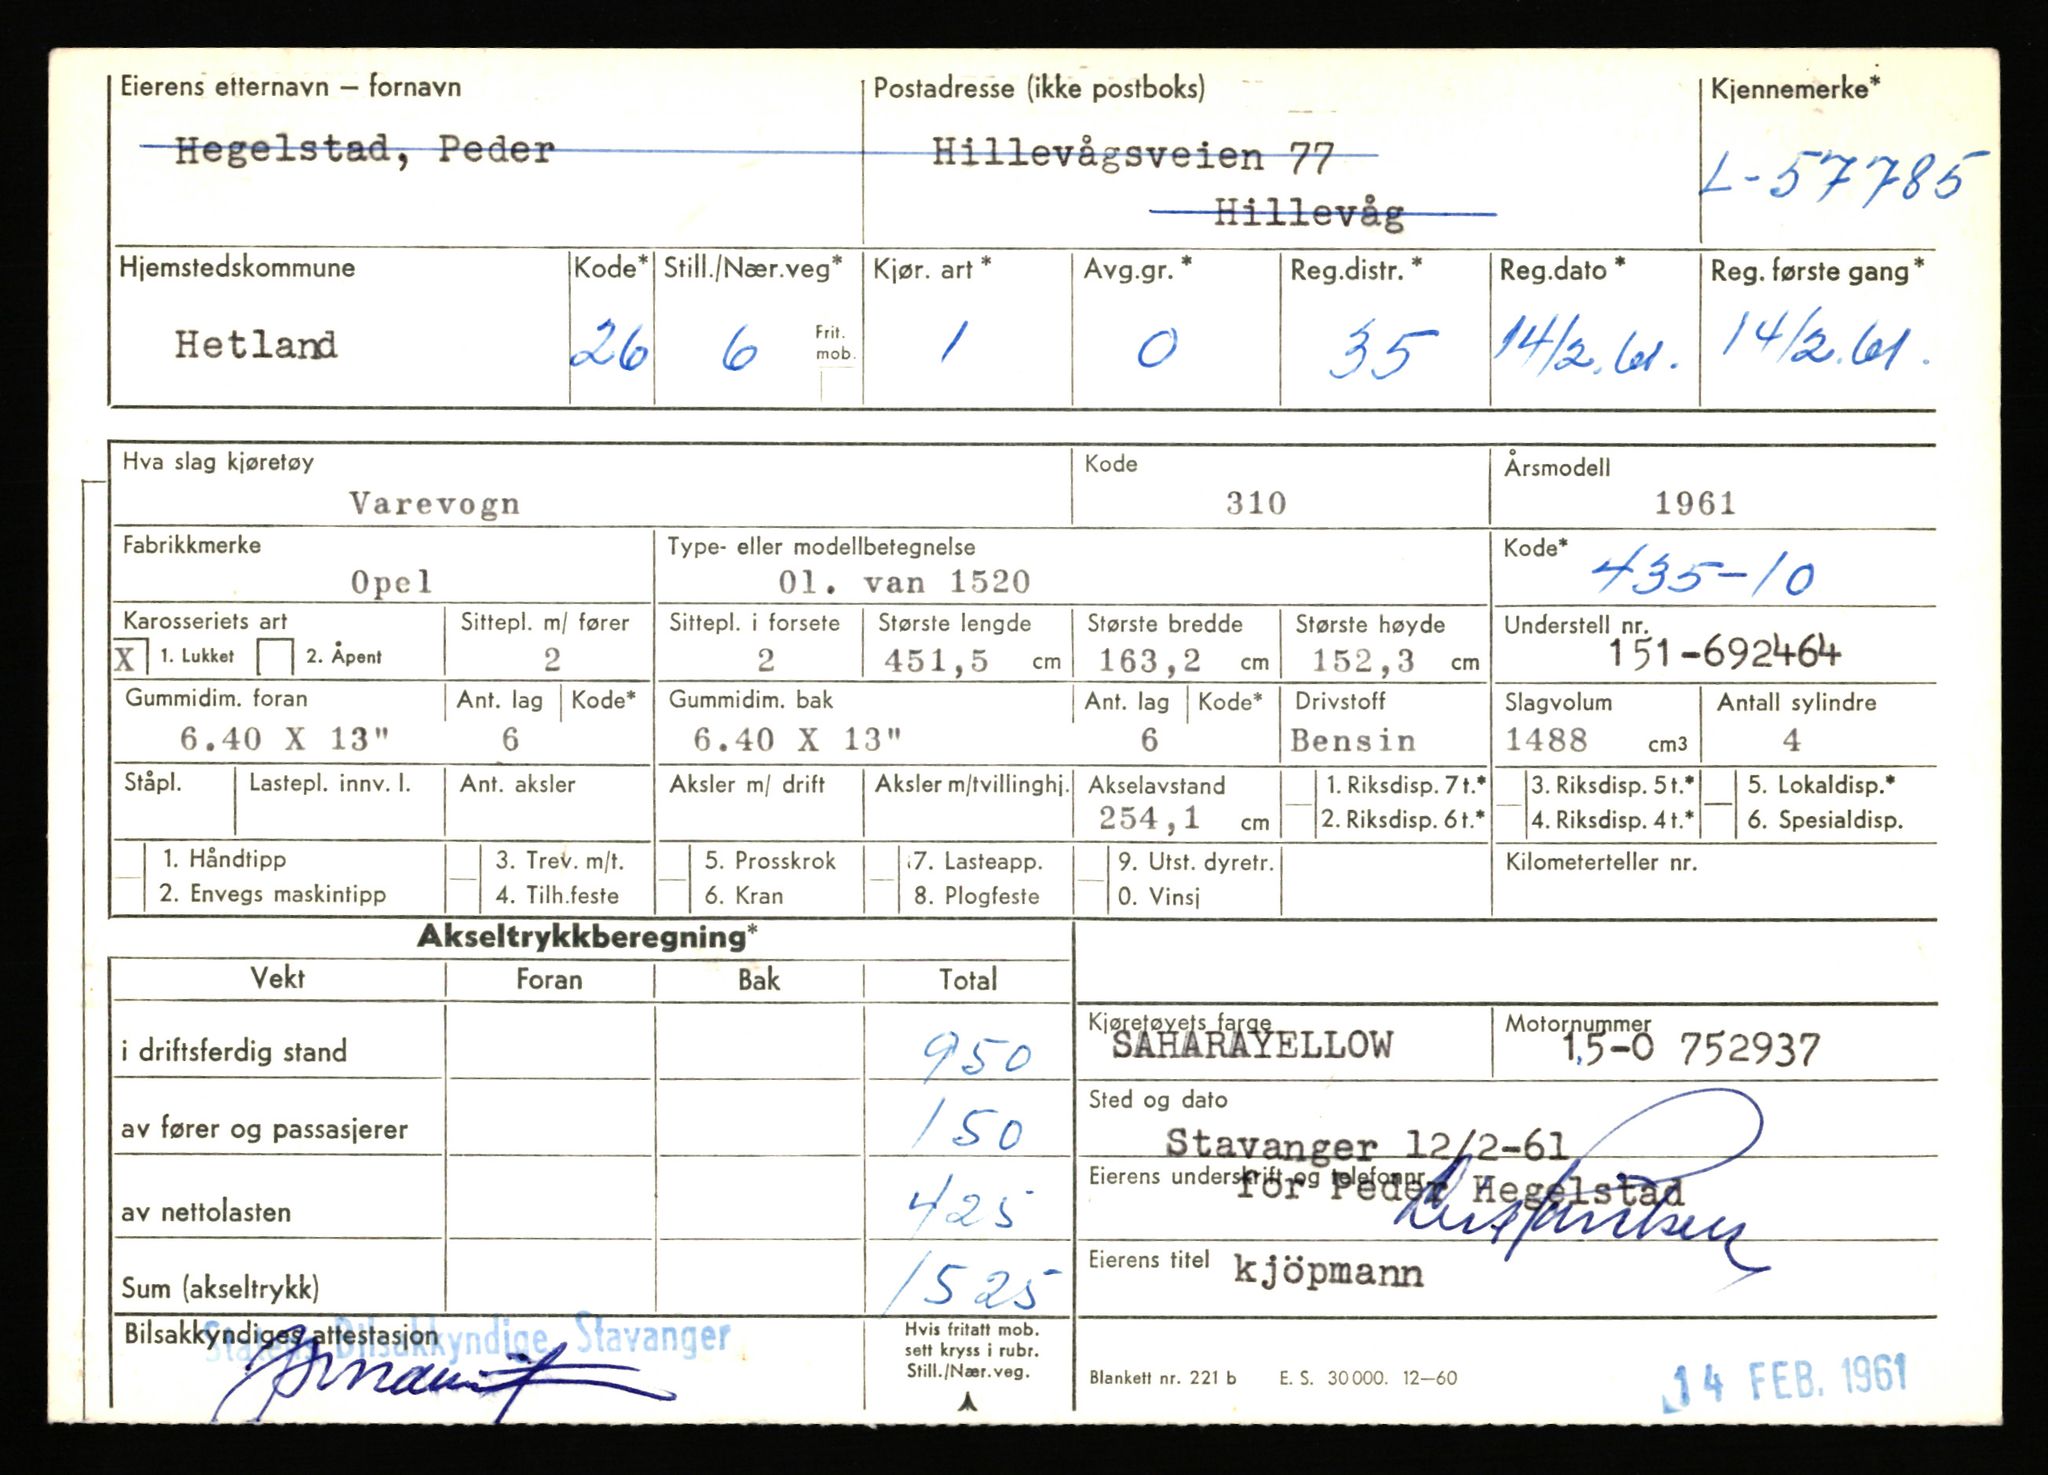 Eierens etternavn – fornavn Postadresse (ikke postboks) Kjennemerke*
Hegelstad, Peder Hillevågsveien 77 L-57785
Hillevåg
Hjemstedskommune Kode* Still./Nær.veg* Kjør. art* Avg.gr.* Reg.distr.* Reg.dato* Reg. første gang*
Hetland 26 6 Frit. mob. 1 0 35 14/2.61. 14/2.61.
Hva slag kjøretøy Kode Årsmodell
Varevogn 310 1961
Fabrikkmerke Type- eller modellbetegnelse Kode*
Opel Ol. van 1520 435-10
Karosseriets art Sittepl. m/ fører Sittepl. i forsete Største lengde Største bredde Største høyde Understell nr.
X 1. Lukket 2. Åpent 2 2 451,5 cm 163,2 cm 152,3 cm 151-692464
Gummidim. foran Ant. lag Kode* Gummidim. bak Ant. lag Kode* Drivstoff Slagvolum Antall sylindre
6.40 X 13" 6 6.40 X 13" 6 Bensin 1488 cm3 4
Ståpl. Lastepl. innv. l. Ant. aksler Aksler m/ drift Aksler m/tvillinghj. Akselavstand 1. Riksdisp. 7 t.* 3. Riksdisp. 5 t.* 5. Lokaldisp.*
254,1 cm 2. Riksdisp. 6 t.* 4. Riksdisp. 4 t.* 6. Spesialdisp.
1. Håndtipp 3. Trev. m/t. 5. Prosskrok 7. Lasteapp. 9. Utst. dyretr. Kilometerteller nr.
2. Envegs maskintipp 4. Tilh.feste 6. Kran 8. Plogfeste 0. Vinsj
Akseltrykkberegning*
Vekt Foran Bak Total
Kjøretøyets farge Motornummer
i driftsferdig stand 950 SAHARAYELLOW 1,5-0 752937
Sted og dato
av fører og passasjerer 150 Stavanger 12/2-61
Eierens underskrift og telefonnr.
for Peder Hegelstad
av nettolasten 425
Eierens titel kjöpmann
Sum (akseltrykk) 1525
Bilsakkyndiges attestasjon Statens Bilsakkyndige, Stavanger
Hvis fritatt mob.
sett kryss i rubr.
Still./Nær.veg.
Blankett nr. 221 b E. S. 30 000. 12–60 14 FEB. 1961